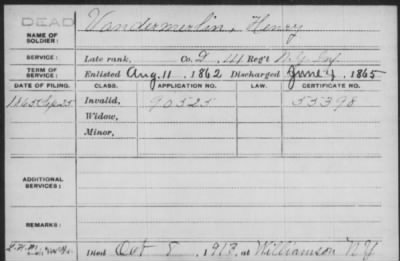 DEAD
NAME OF SOLDIER: Vandermerlin, Henry
SERVICE: Late rank, Co. D, 111 Reg't N.Y. Inf.
TERM OF SERVICE: Enlisted Aug. 11, 1862 Discharged June 4, 1865
DATE OF FILING. CLASS. APPLICATION NO. LAW. CERTIFICATE NO.
1865 Sep 25 Invalid, 90525 55398
Widow,
Minor,
ADDITIONAL SERVICES:
REMARKS:
Died Oct 8, 1913, at Williamson N.Y.